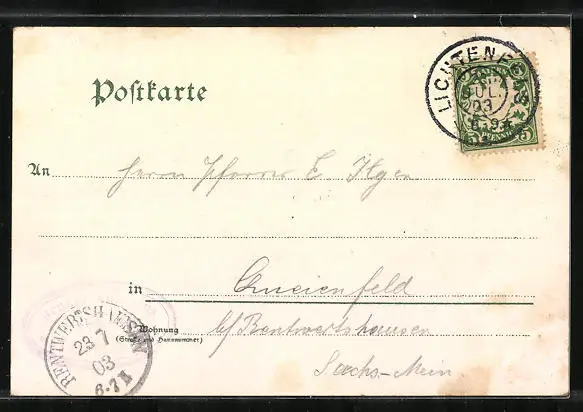 Postkarte
LICHTENFELS
JUL.
03
8-9
BAYERN
5 PFENNIG 5
An Herrn Pfarrer E. Ilgen
in Queienfeld
Wohnung b/ Rentwertshausen
(Straße und Hausnummer)
Sachs-Mein.
RENTWERTSHAUSEN
23 7
03
6-7 N